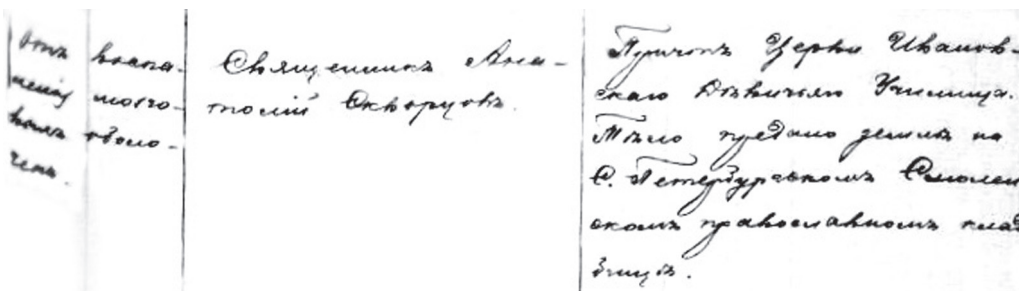 Отъ воспа-
ленія мозго-
выхъ оболо-
чекъ.
Священникъ Ана-
толій Скворцовъ.
Причтъ Церкви Иванов-
скаго Дѣвичьяго Училища.
Тѣло предано землѣ на
С. Петербургскомъ Смолен
скомъ православномъ клад
бищѣ.